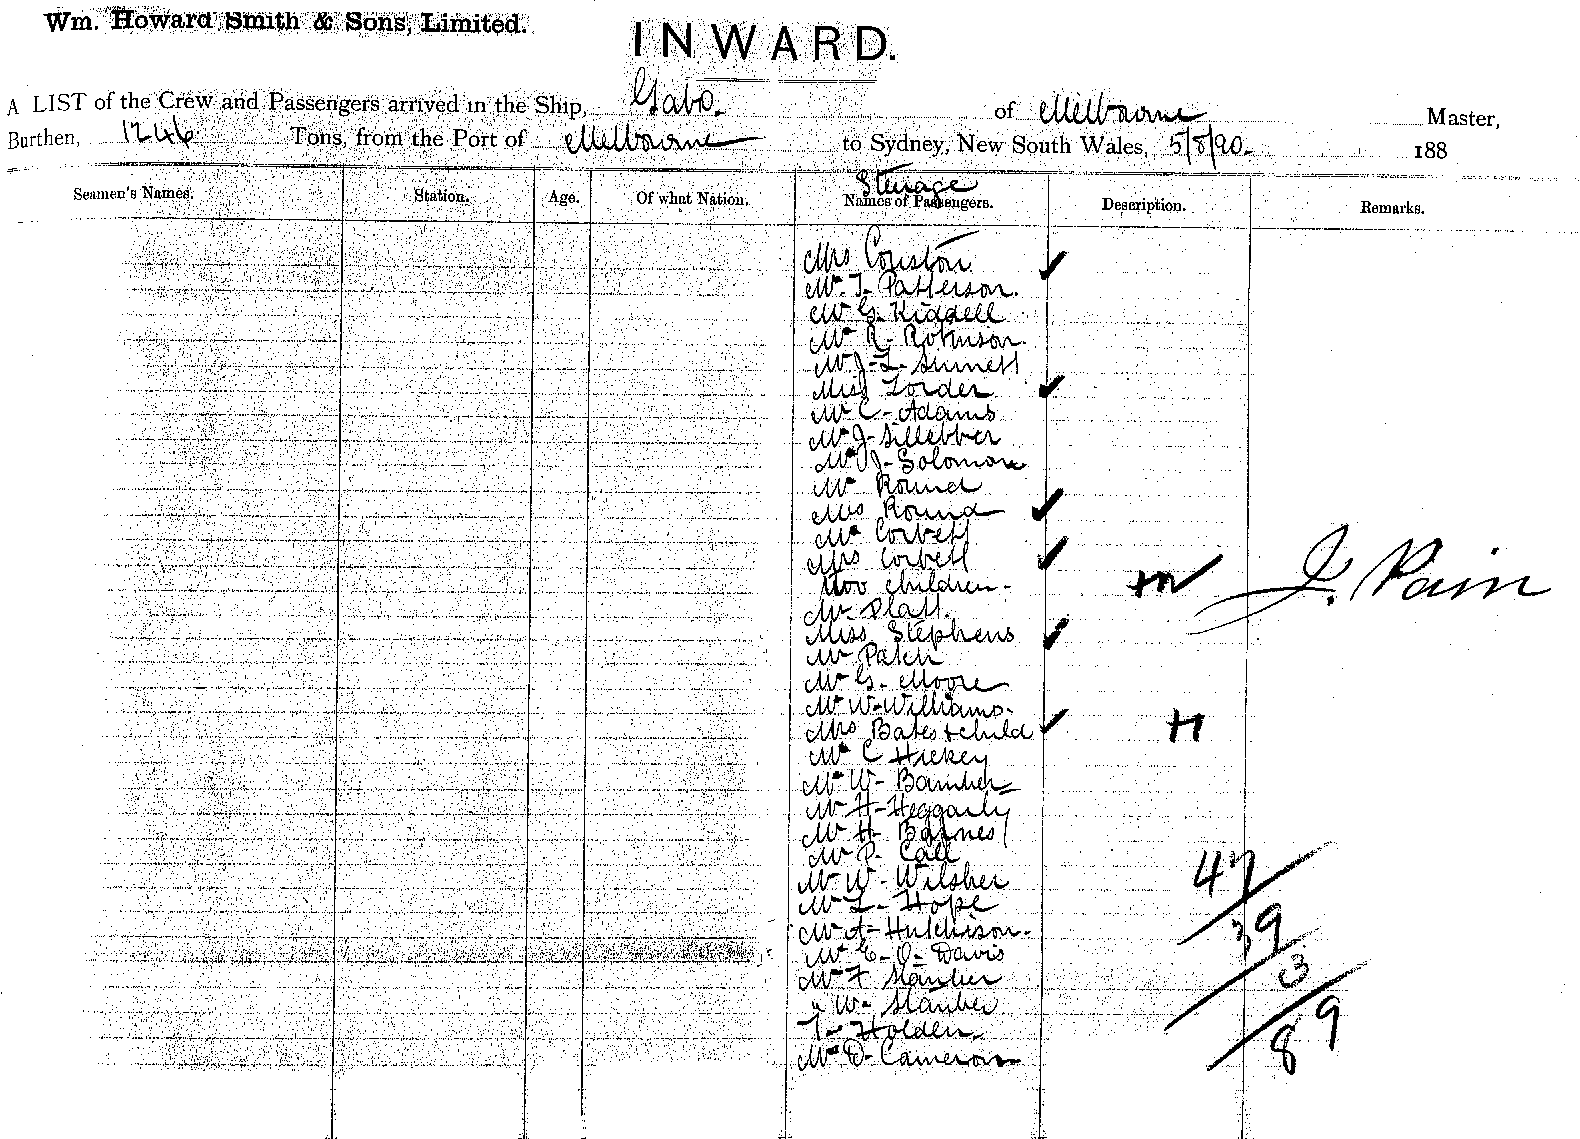 Wm. Howard Smith & Sons, Limited.
INWARD.
A LIST of the Crew and Passengers arrived in the Ship, Gabo. of Melbourne Master,
Burthen, 1246 Tons, from the Port of Melbourne to Sydney, New South Wales, 5/8/90 188
Steerage
Seamen's Names. Station. Age. Of what Nation. Names of Passengers. Description. Remarks.
Mrs Couston
Mr T- Patterson.
Mr G. Kiddell
Mr R- Robinson
Mr J- L- Sinnett
Miss Lorder
Mr C- Adams
Mr J-
Mr J- Solomon
Mr Round
Mrs Round
Mr Corbett
Mrs Corbett
two children- m J. Pain
Mr Platt.
Miss Stephens
Mr Patch
Mr G. Moore
Mr W- Williams.
Mrs Bates + child H
Mr C Hickey
Mr W- Bamber
Mr H- Heggarty
Mr H- Barnes
Mr P- Call
Mr W- Wilsher 47
Mr L- Hope
Mr A- Hutchison. 39
Mr E- O- Davis
Mr F Stanber 3
" W- Stanber
T- Holden 89
Mr D- Cameron